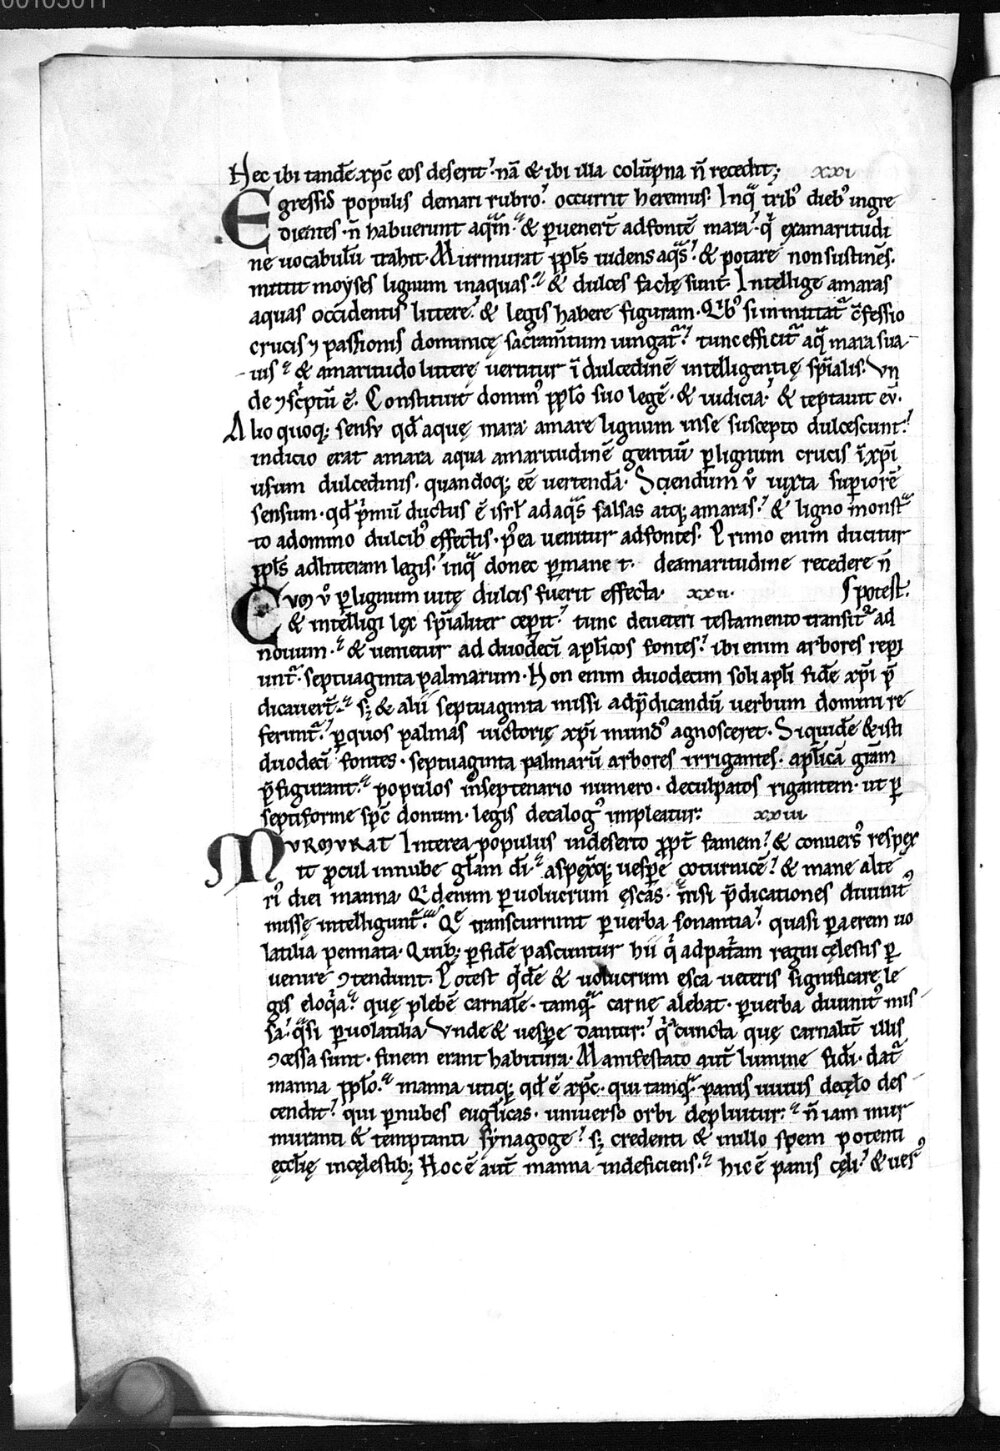 00103011
Hec ibi tandē xp̄c eos deserit. nā & ibi illa colūpna n̄ recedit; xxi
Egressis populis demari rubro. occurrit heremus. Inq̄ tribꝰ diebꝰ ingre
dientes. n̄ habuerunt aquā. & ꝑvenerт̄ adfontē mara. q̇ examaritudi
ne uocabulū trahit. Murmurat ppl̄s uidens aquas. & potare non sustinēs.
mittit moyses lignum inaquas. & dulces factę sunt. Intellige amaras
aquas occidentis littere. & legis habere figuram. Qibꝰ si inmittat᷑ ↄ̄fessio
crucis ⁊ passionis dominicę sacram̄tum iungat᷑. tunc efficit᷑ aqua mara sua
uis. & amaritudo litterę vertitur ī dulcedinē intelligentię sp̄ialis. Vn
de ⁊ sc̄ptū ē. Constituit dominꝰ ppl̄o suo legē. & iudicia. & teptavit eū.
Alio quoq; sensu qd̄ aquę mara. amare lignum inse suscepto dulcescunt.
indicio erat amara aqua amaritudinē gentiū ꝑlignum crucis īxp̄i
usum dulcedinis. quandoq; eē vertendā. Sciendum v̊ iuxta superiorē
sensum. qd̄ p̄mū ductus ē isrl̄ ad aquas salsas atq; amaras. & ligno monst᷑
to adomino dulcibꝰ effectis. p̄ea venitur adfontes. Primo enim ducitur
ppl̄s adlitteram legis. inqua donec ꝑmanet. deamaritudine recedere n̄
Cum v̊ ꝑlignum uitę dulcis fuerit effecta. xxii. potest.
& intelligi lex sp̄ialiter cepit. tunc deveteri testamento transit᷑ ad
novum. & venitur ad duodecī apl̄icos fontes. ibi enim arbores reperi
unt᷑. septuaginta palmarum. Non enim duodecim soli apl̄i fidē xp̄i p̄
dicavert̄. s; & alii septuaginta missi adp̄dicandū verbum domini re
ferunt᷑. ꝑquos palmas uictorię xp̄i mundꝰ agnosceret. Siquidē & isti
duodecī fontes. septuaginta palmarū arbores irrigantes. apl̄icā gr̄am
p̄figurant. populos inseptenario numero. deculpatos rigantem. ut ꝑ
septiforme sp̄c donum. legis decalogꝰ impleatur. xxiii
MVRMVRAT Interea populus indeserto ppт̄ famem. & conversꝰ respex
it procul innube gl̄am dī. aspexitq; uespere coturnicē. & mane alte
ri diei manna. Qidenim ꝑuolucrum escas. nisi p̄dicationes diuinitꝰ
misse intelligunt᷑. Qę transcurrunt ꝑ verba sonantia. quasi ꝑ aerem uo
latilia pennata. Quib; ꝑfidē pascuntur hii q̇ adpatriam regni cęlestis ꝑ
venire ↄtendunt. Potest qidē & uolucrum esca ueteris significare le
gis eloqia. quę plebē carnalē. tamq̄ carne alebat. ꝑ verba diuinitꝰ mis
sa. quasi ꝑ uolatilia. Vnde & uespere dantur. q̇ cuncta quę carnalit᷑ illis
ↄcessa sunt. finem erant habitura. Manifestato aut̄ lumine fidei. dat᷑
manna ppl̄o. manna utiq; qd̄ ē xp̄c. qui tamq̄ panis uiuus decęlo des
cendit. qui ꝑ nubes eug̃licas. universo orbi depluitur. n̄ iam mur
muranti & temptanti synagoge. s; credenti & inillo spem potenti
ęccl̄ię incęlestib; Hoc ē aut̄ manna indeficiens. hic ē panis cęli. & ues